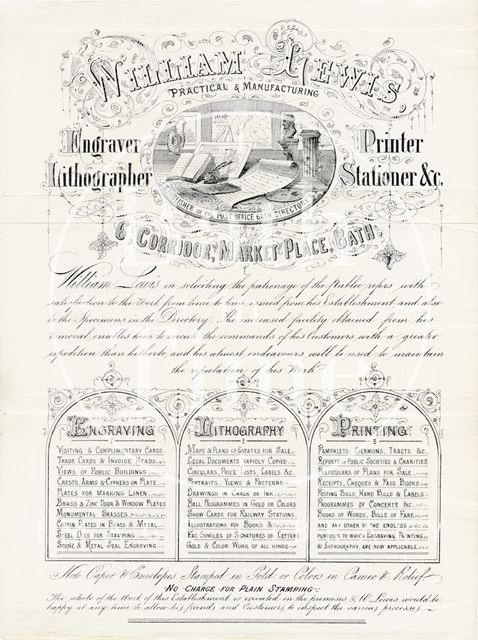 WILLIAM LEWIS,
PRACTICAL & MANUFACTURING
Engraver
Printer
Lithographer
Stationer &c.
PUBLISHER OF THE POST OFFICE BATH DIRECTORY
6 CORRIDOR, MARKET PLACE, BATH.
William Lewis in soliciting the patronage of the Public refers with
satisfaction to the Work from time to time issued from his Establishment and also
to the Specimens in the Directory. The increased facility obtained from his
removal enables him to execute the commands of his Customers with a greater
expedition than hitherto, and his utmost endeavours will be used to maintain
the reputation of his Work.
ENGRAVING
VISITING & COMPLIMENTARY CARDS
TRADE CARDS & INVOICE HEADS
VIEWS OF PUBLIC BUILDINGS
CRESTS, ARMS & CYPHERS ON PLATE
PLATES FOR MARKING LINEN
BRASS & ZINC DOOR & WINDOW PLATES
MONUMENTAL BRASSES
COFFIN PLATES IN BRASS & METAL
STEEL DIES FOR STAMPING
STONE & METAL SEAL ENGRAVING
LITHOGRAPHY
MAPS & PLANS OF ESTATES FOR SALE
LEGAL DOCUMENTS RAPIDLY COPIED
CIRCULARS, PRICE LISTS, LABELS &c
PORTRAITS, VIEWS & PATTERNS
DRAWINGS IN CHALK OR INK
BALL PROGRAMMES IN GOLD OR COLORS
SHOW CARDS FOR RAILWAY STATIONS
ILLUSTRATIONS FOR BOOKS &c
FAC-SIMILES OF SIGNATURES OF LETTERS
GOLD & COLOR WORK OF ALL KINDS
PRINTING
PAMPHLETS, SERMONS, TRACTS &c.
REPORTS OF PUBLIC SOCIETIES & CHARITIES
PARTICULARS OF PLANS FOR SALE
RECEIPTS, CHEQUES & PASS BOOKS
POSTING BILLS, HAND BILLS & LABELS
PROGRAMMES OF CONCERTS &c
BOOKS OF WORDS, BILLS OF FARE
AND ANY OTHER OF THE ENDLESS
PURPOSES TO WHICH ENGRAVING PRINTING
& LITHOGRAPHY, ARE NOW APPLICABLE
Note Paper & Envelopes Stamped in Gold or Colors in Cameo & Relief
NO CHARGE FOR PLAIN STAMPING
The whole of the Work of this Establishment is executed on the premises & W. Lewis would be
happy at any time to allow his friends and Customers to inspect the various processes